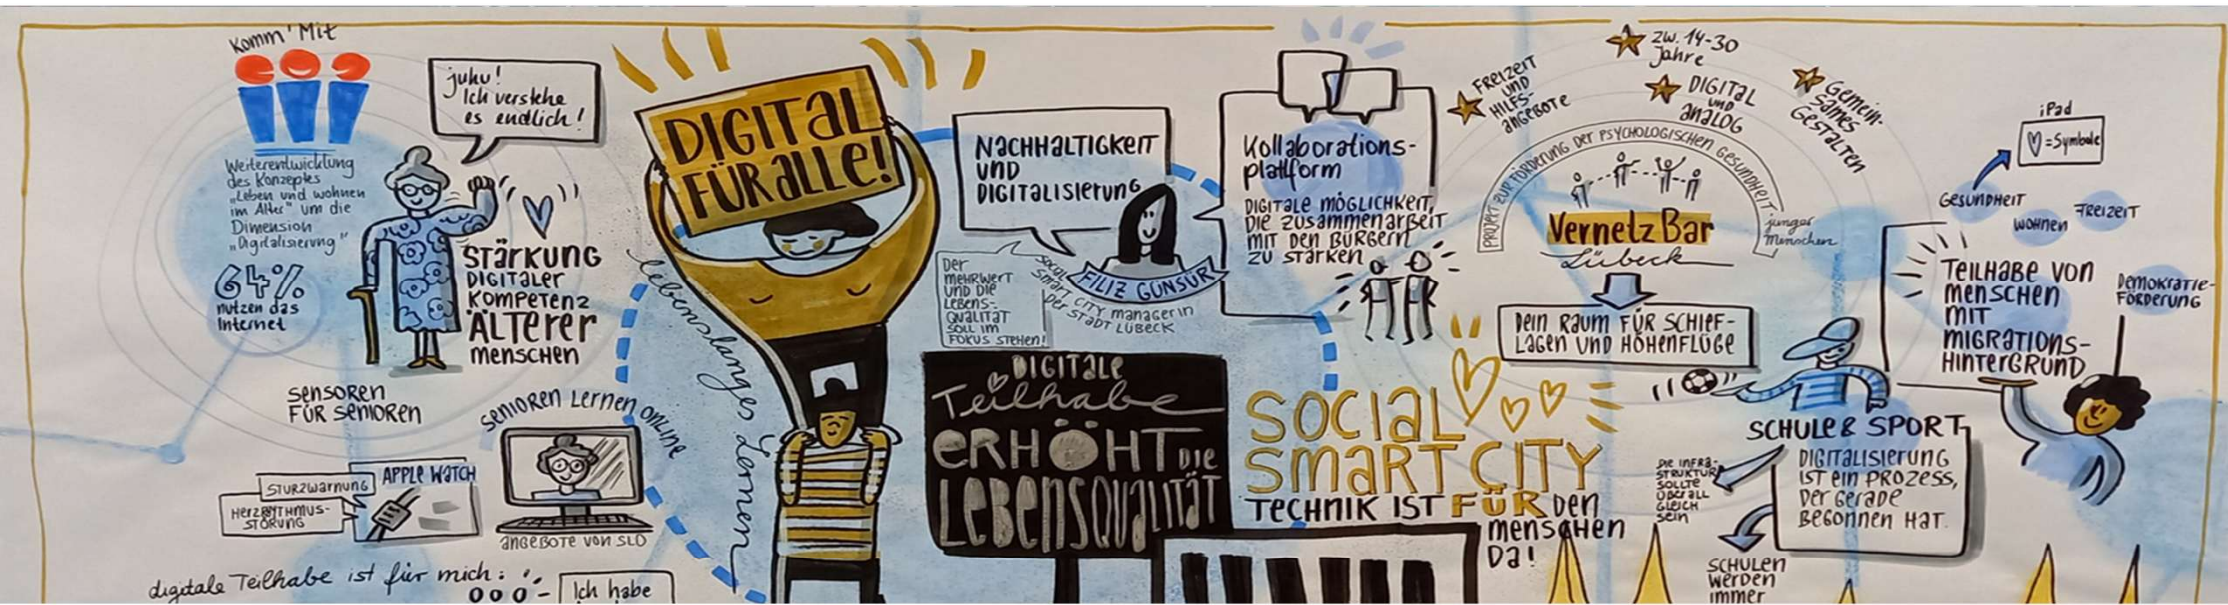 Komm' Mit
Weiterentwicklung
des Konzeptes
„Leben und wohnen
im Alter" um die
Dimension
„Digitalisierung"
64%
nutzen das
Internet
juhu!
Ich verstehe
es endlich!
STÄRKUNG
DIGITALER
KOMPETENZ
ÄLTERER
MENSCHEN
SENSOREN
FÜR SENIOREN
STURZWARNUNG
HERZRYTHMUS-
STÖRUNG
APPLE WATCH
SENIOREN LERNEN ONLINE
ANGEBOTE VON SLD
digitale Teilhabe ist für mich:
Ich habe
DIGITAL
FÜR ALLE!
lebenslanges Lernen
NACHHALTIGKEIT
UND
DIGITALISIERUNG
DER
MEHRWERT
UND DIE
LEBENS-
QUALITÄT
SOLL IM
FOKUS STEHEN!
FILIZ GÜNSÜR
SOCIAL
SMART CITY MANAGERIN
DER STADT LÜBECK
DIGITALE
Teilhabe
ERHÖHT DIE
LEBENSQUALITÄT
Kollaborations-
plattform
DIGITALE MÖGLICHKEIT,
DIE ZUSAMMENARBEIT
MIT DEN BÜRGERN
ZU STÄRKEN
SOCIAL
SMART CITY
TECHNIK IST FÜR DEN
MENSCHEN
DA!
FREIZEIT
UND
HILFS-
ANGEBOTE
ZW. 14-30
Jahre
DIGITAL
UND
ANALOG
GEMEIN-
SAMES
GESTALTEN
PROJEKT ZUR FÖRDERUNG DER PSYCHOLOGISCHEN GESUNDHEIT
junger
Menschen
VernetzBar
Lübeck
DEIN RAUM FÜR SCHIEF-
LAGEN UND HÖHENFLÜGE
SCHULE & SPORT
DIGITALISIERUNG
IST EIN PROZESS,
DER GERADE
BEGONNEN HAT.
DIE INFRA-
STRUKTUR
SOLLTE
ÜBERALL
GLEICH
SEIN
SCHULEN
WERDEN
IMMER
iPad
=Symbole
GESUNDHEIT
WOHNEN
FREIZEIT
TEILHABE VON
MENSCHEN
MIT
MIGRATIONS-
HINTERGRUND
DEMOKRATIE-
FÖRDERUNG